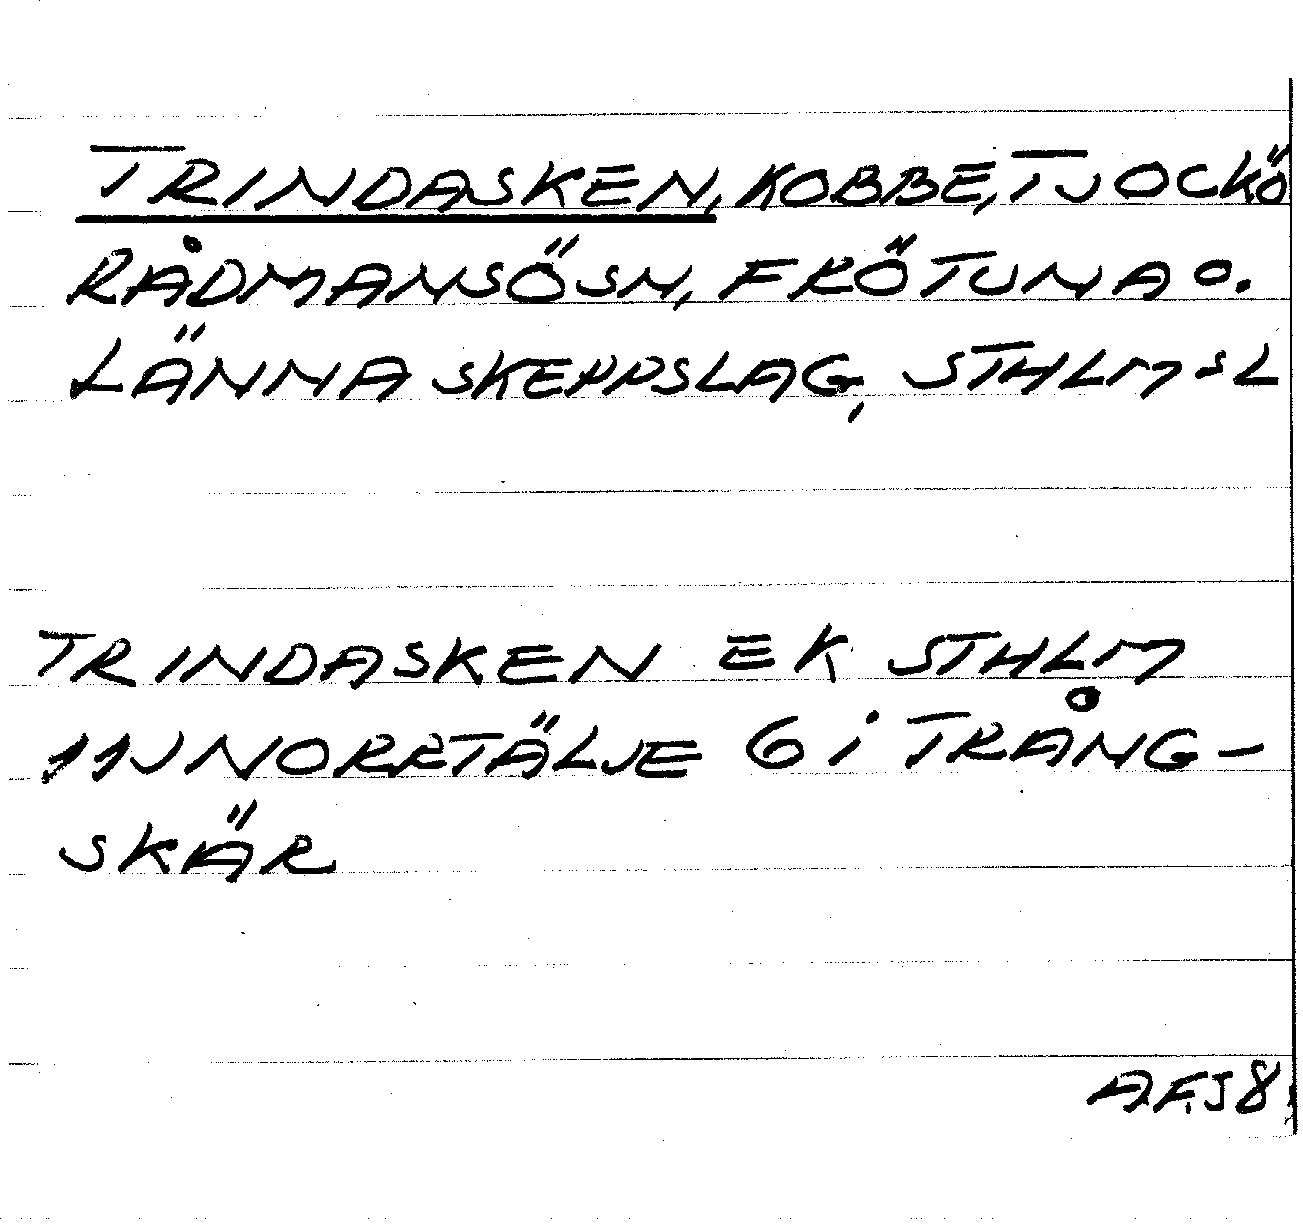 TRINDASKEN, KOBBE, TJOCKÖ
RÅDMANSÖ SN, FRÖTUNA O.
LÄNNA SKEPPSLAG, STHLMSL
TRINDASKEN EK STHLM
11J NORRTÄLJE 6 i TRÅNG-
SKÄR
A.F.J 8